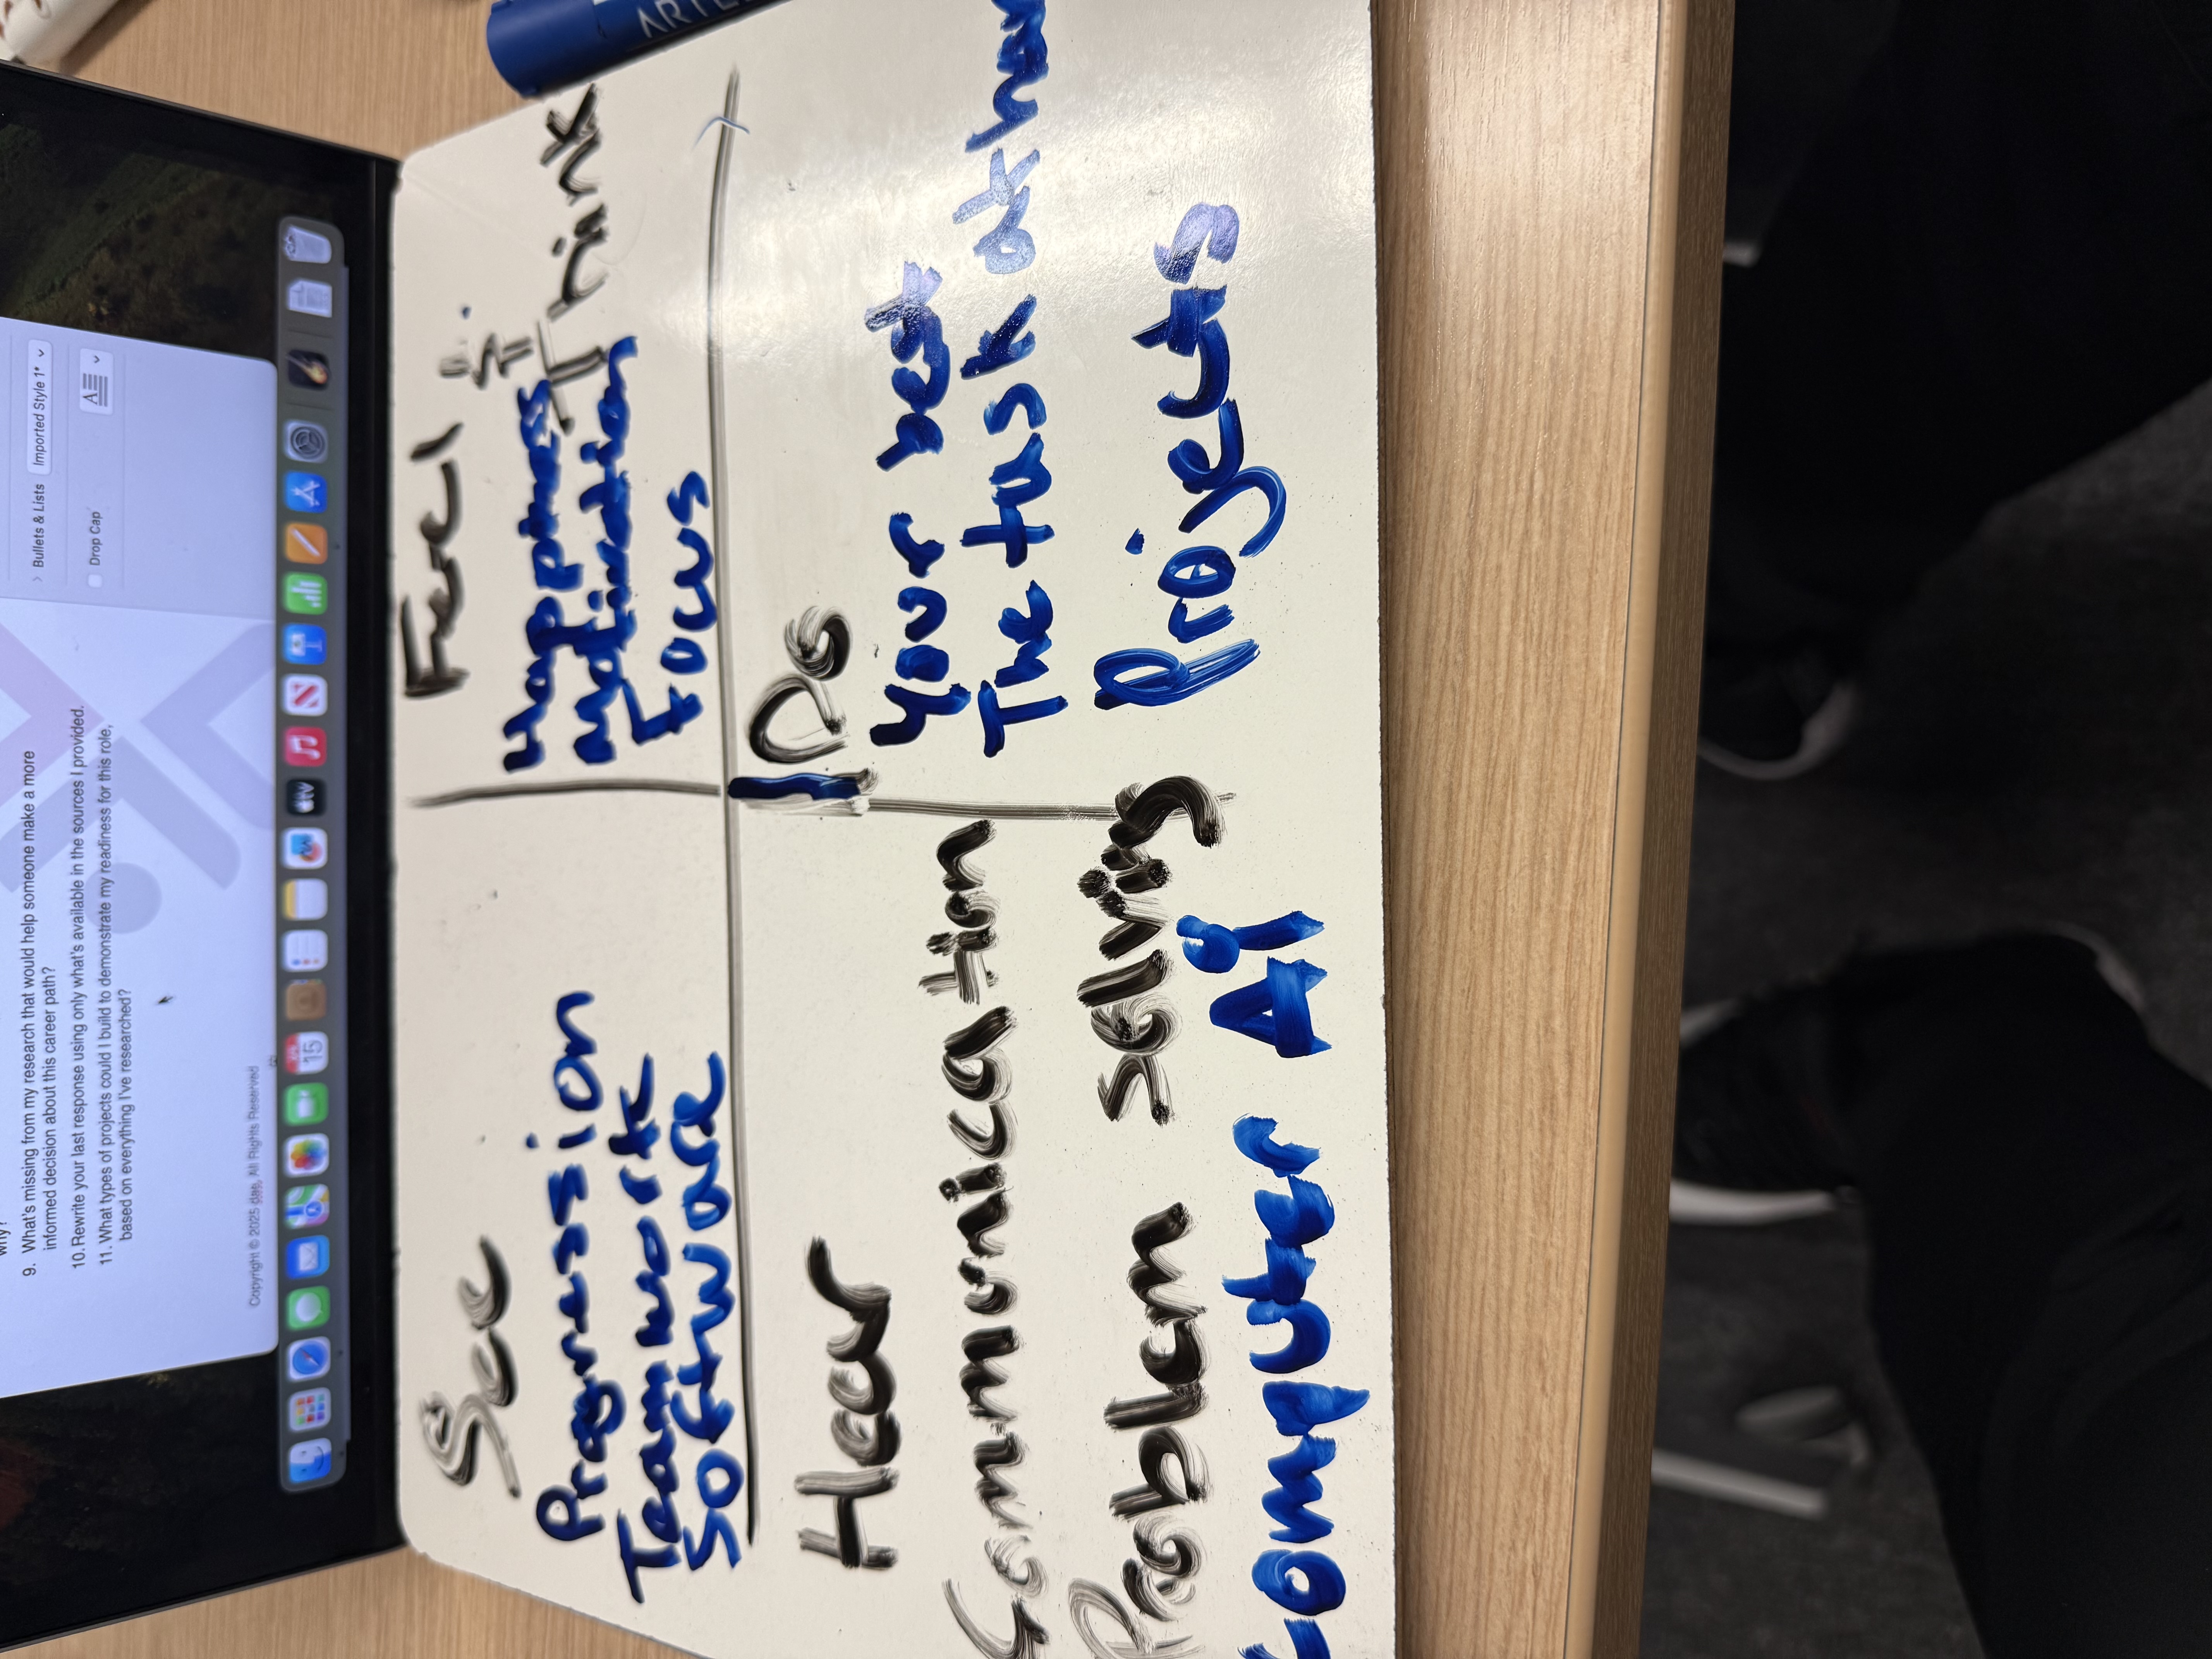 why?
9. What's missing from my research that would help someone make a more
informed decision about this career path?
10. Rewrite your last response using only what's available in the sources I provided.
11. What types of projects could I build to demonstrate my readiness for this role,
based on everything I've researched?
Copyright © 2025 dae, All Rights Reserved
Bullets & Lists Imported Style 1*
Drop Cap
A
15
tv
See
Progression
Teamwork
Software
Feel
&
Think
Happiness
Motivation
Focus
Hear
Communication
Problem solving
Computer Ai
Do
Your best
The task at han
Projects